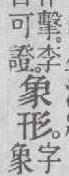 可擊
證。李
象形。
象字